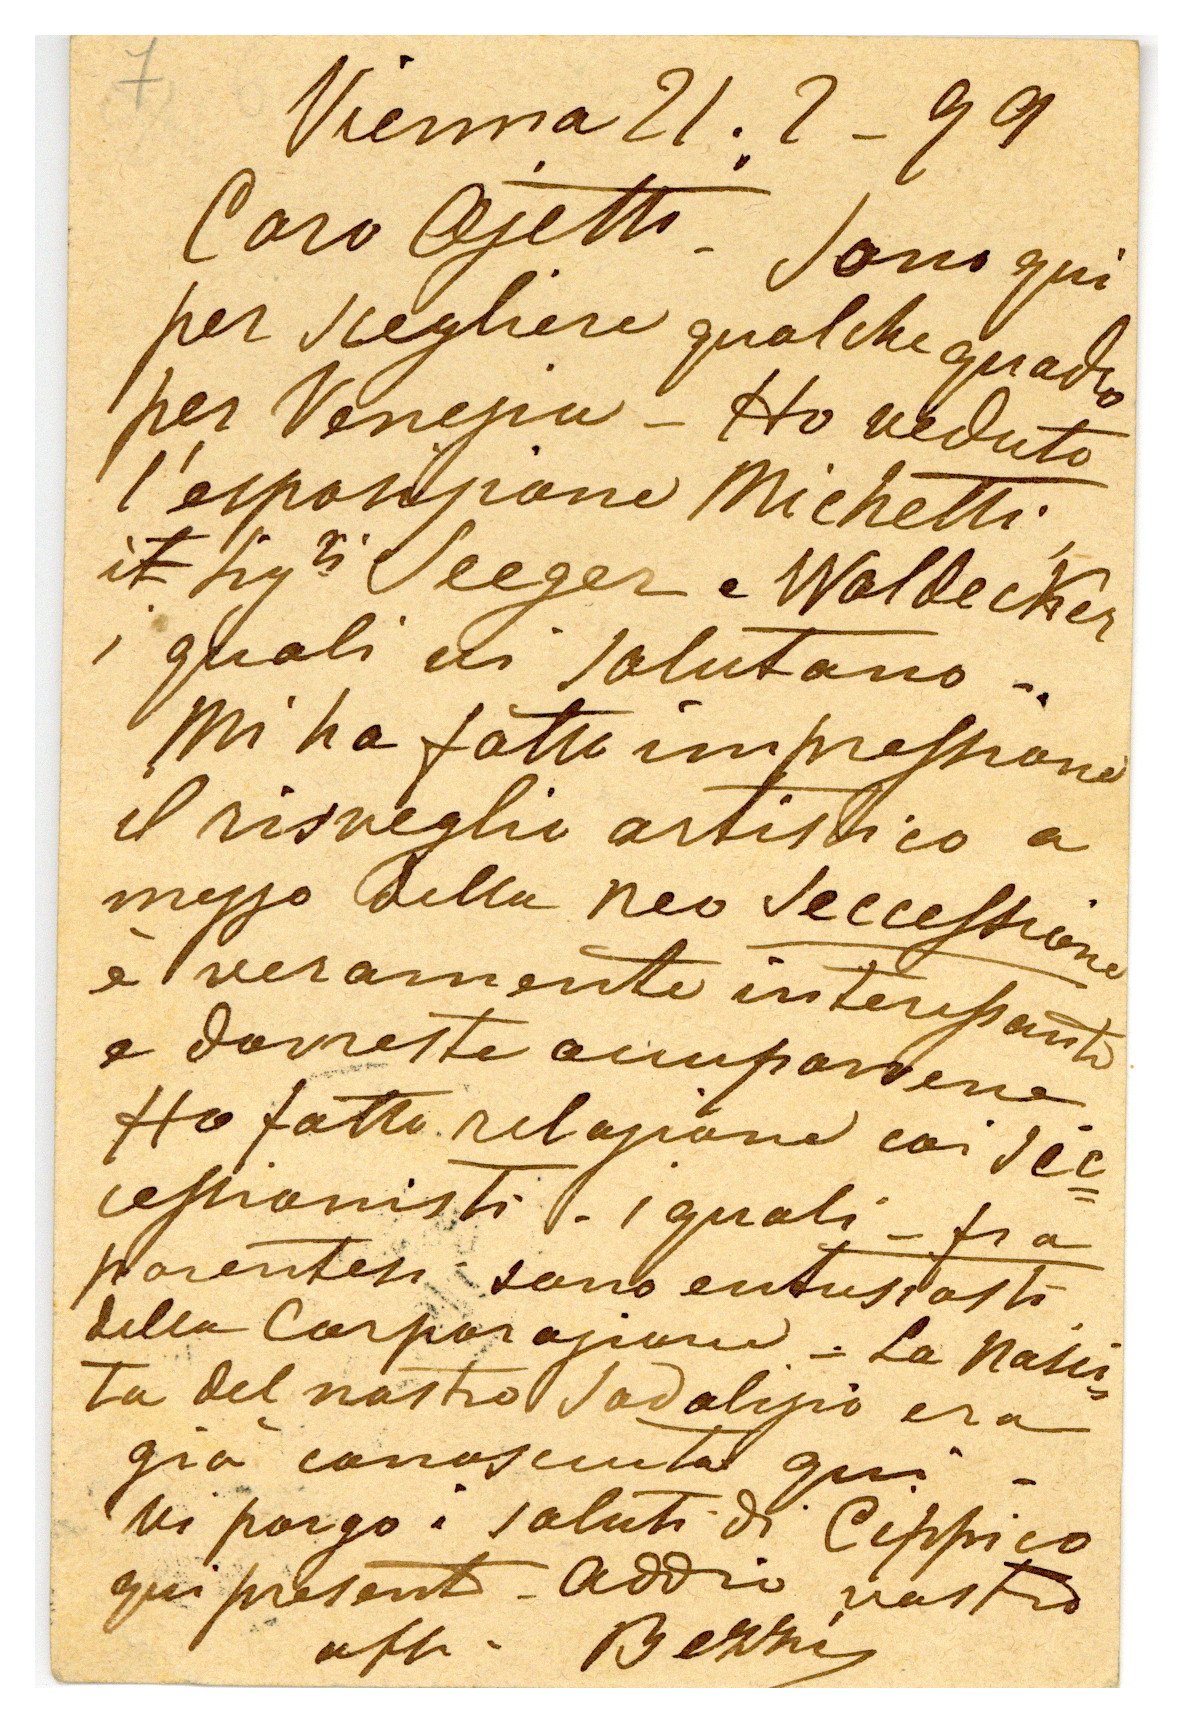 7
Vienna 21. 2 - 99
Caro Ojetti - Sono qui
per scegliere qualche quadro
per Venezia - Ho veduto
l'esposizione Michetti,
it Sigri Seeger e Waldecker
i quali vi salutano -.
Mi ha fatto impressione
il risveglio artistico a
mezzo della neo Seccessione
è veramente interessante
e dovreste occuparvene
Ho fatto relazione coi Sec=
cessionisti - i quali - fra
parentesi - sono entusiasti
della Corporazione - La nasci=
ta del nostro Sodalizio era
già conosciuta qui -
Vi porgo i saluti di Cippico
qui presente - addio vostro
aff. Bezzi